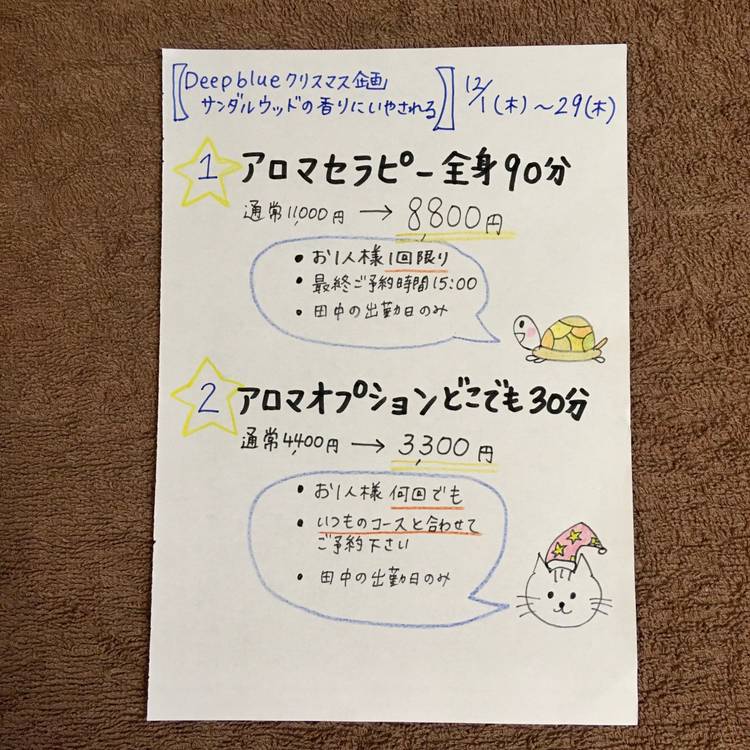 【Deep blueクリスマス企画
サンダルウッドの香りにいやされる】12/1(木)〜29(木)
1 アロマセラピー全身90分
通常11,000円 → 8,800円
• お1人様1回限り
• 最終ご予約時間15:00
• 田中の出勤日のみ
2 アロマオプションどこでも30分
通常4,400円 → 3,300円
• お1人様何回でも
• いつものコースと合わせて
ご予約下さい
• 田中の出勤日のみ